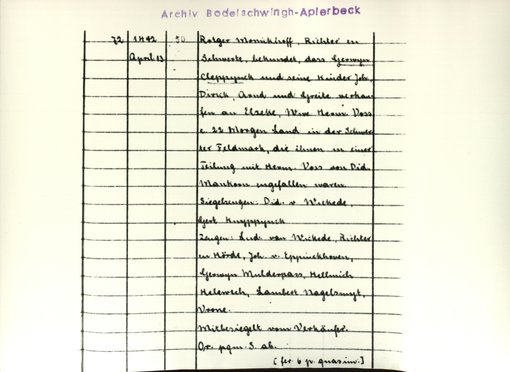 Archiv Bodelschwingh-Aplerbeck
72 1442 50 Rotger Monickhoff Richter in
April 13 Schwerte, bekundet, dass Gerwyn
Cleppynck und seine Kinder Joh.
Dirick, Arnd und Greite verkau-
fen an Elzeke, Wwe Herm. Voss
c. 22 Morgen Land in der Schwer-
ter Feldmark, die ihnen in einer
Teilung mit Herm. Voss von Did.
zugefallen waren.
Siegelzeugen: Did. v. Wickede,
Gert Knyppynck
Zeugen: Lud. van Wickede, Richter
in Hörde, Joh. v. Eppinckhoven,
Gerwyn Mulderpass, Hellmich
Helewech, Lambert Nagelsmyt,
Vrone.
Mitbesiegelt vom Verkäufer.
Or. pgm. S. ab.
[fer. 6 p. quasim.]